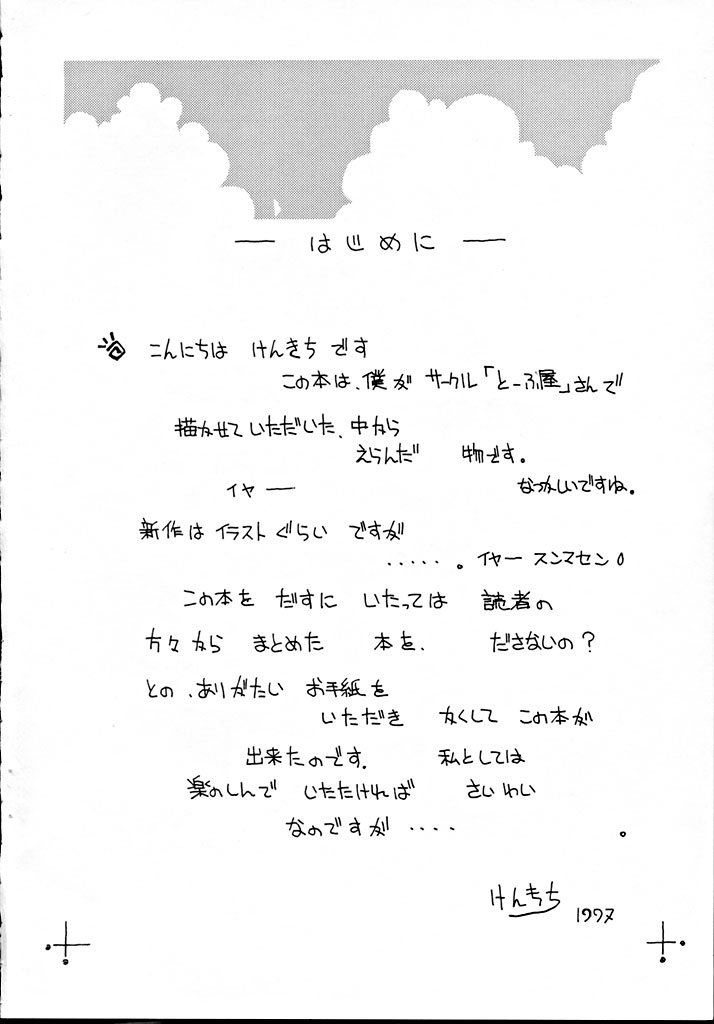 ― はじめに ―
こんにちは けんきち です
この本は、僕が サークル「とーふ屋」さんで
描かせていただいた、中から
えらんだ 物です。
イヤ― なつかしいですね。
新作は イラストぐらい ですが
・・・・・。イヤー スンマセン
この本を だすに いたっては 読者の
方々から まとめた 本を、 ださないの?
との、ありがたい お手紙を
いただき かくして この本が
出来たのです. 私としては
楽のしんで いたたければ さいわい
なのですが ・・・・ 。
けんきち 1997